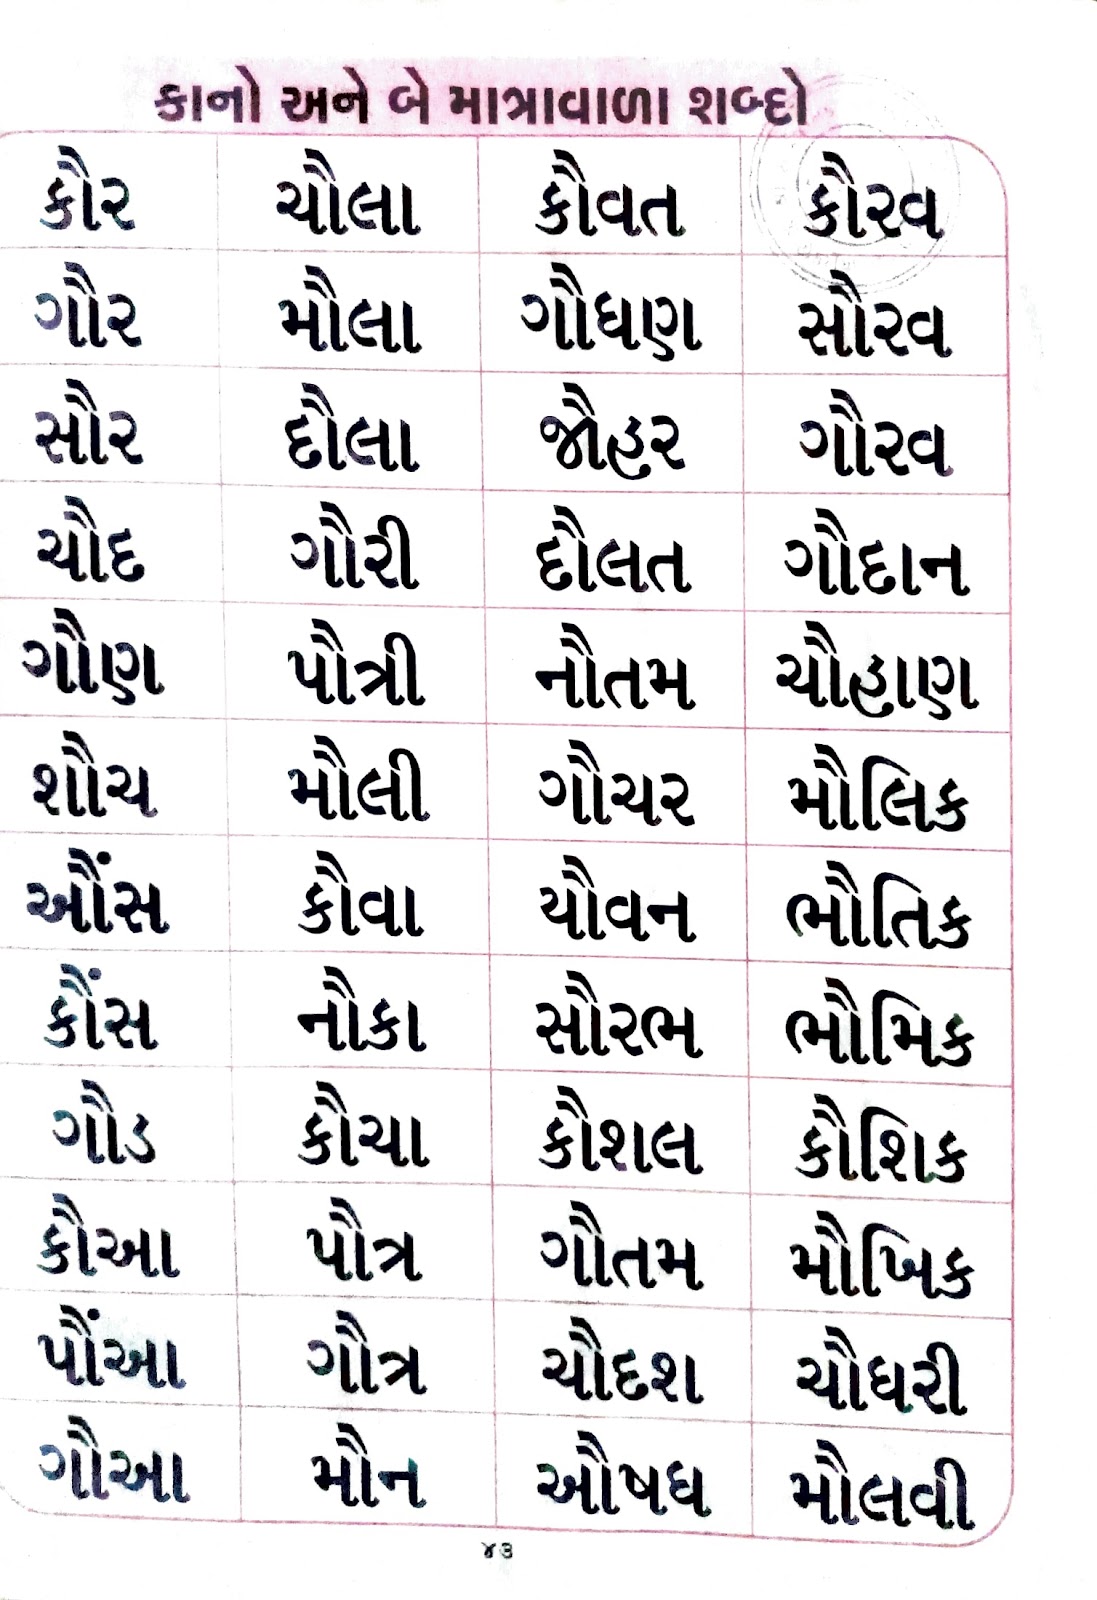 કાનો અને બે માત્રાવાળા શબ્દો
કૌર ચૌલા કૌવત કૌરવ
ગૌર મૌલા ગૌધણ સૌરવ
સૌર દૌલા જૌહર ગૌરવ
ચૌદ ગૌરી દૌલત ગૌદાન
ગૌણ પૌત્રી નૌતમ ચૌહાણ
શૌચ મૌલી ગૌચર મૌલિક
ઔંસ કૌવા યૌવન ભૌતિક
કૌંસ નૌકા સૌરભ ભૌમિક
ગૌડ કૌચા કૌશલ કૌશિક
કૌઆ પૌત્ર ગૌતમ મૌખિક
પૌંઆ ગૌત્ર ચૌદશ ચૌધરી
ગૌઆ મૌન ઔષધ મૌલવી
૪૩